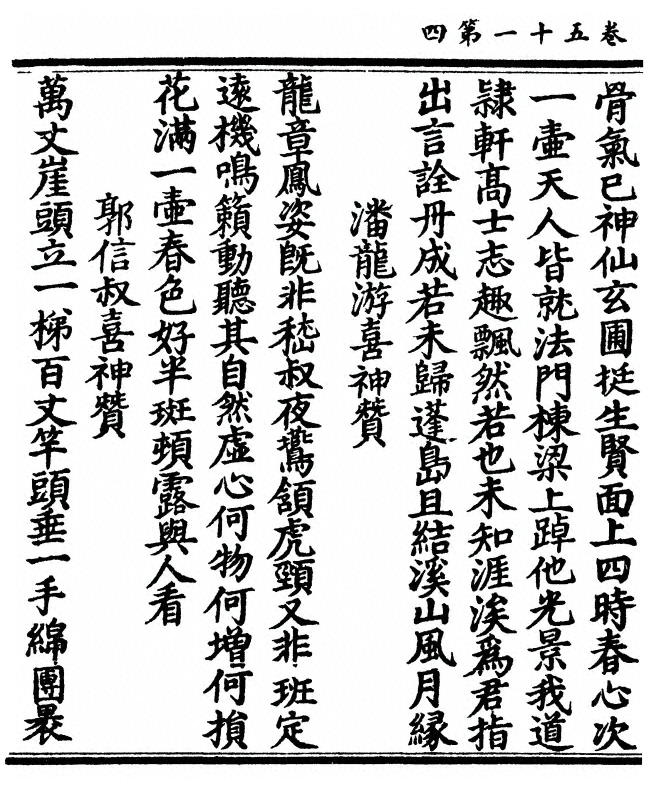 卷五十一第四
骨氣已神仙玄圃挺生賢面上四時春心次
一壷天人皆就法門棟梁上踔他光景我道
隷軒髙士志趣飄然若也未知涯涘爲君指
出言詮丹成若未歸蓬島且結溪山風月縁
潘龍游喜神贊
龍章鳳姿旣非嵇叔夜鷰頷虎頸又非班定
逺機鳴籟動聽其自然虛心何物何增何損
花滿一壷春色好半斑頓露與人看
郭信叔喜神贊
萬丈崖頭立一梯百丈竿頭垂一手綿團裹